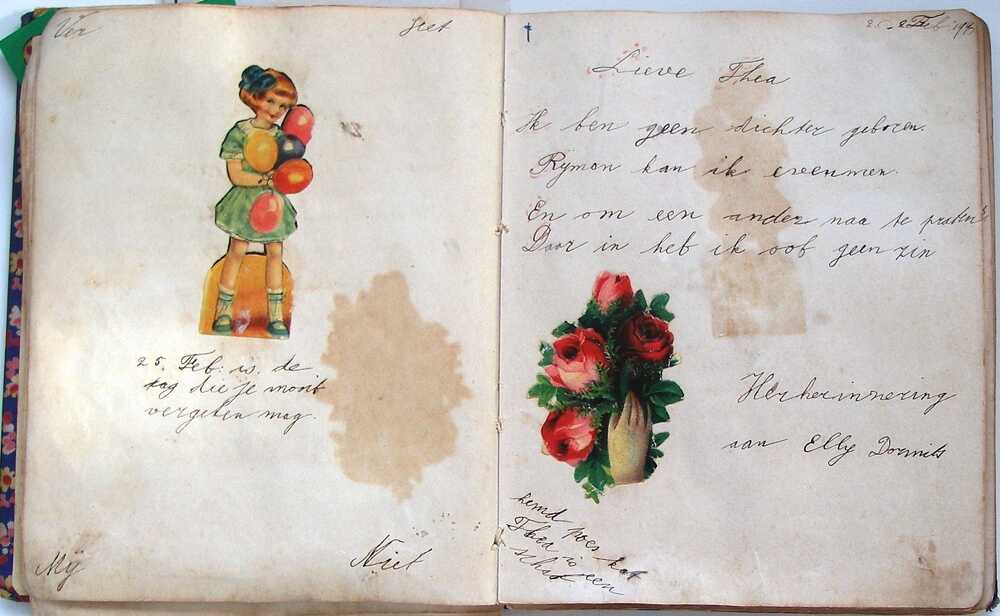 Ver
Geet
25. Feb: is de
dag die je nooit
vergeten mag.
Mij
Niet
Feb
Lieve Thea
Ik ben geen dichter geboren.
Rymen kan ik evenmen.
En om een ander naa te praten
Daar in heb ik oof geen zin
Herherinnering
aan Elly
hemd poes kat
Thea is een
schat